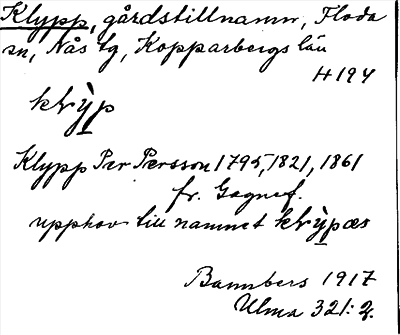 Klypp, gårdstillnamn, Floda
sn, Nås tg, Kopparbergs län
H 194
klỳp
Klypp Per Persson 1795, 1821, 1861
fr. Gagnef.
upphov till namnet klỳpæs
Bannbers 1917
Ulma 321:2.